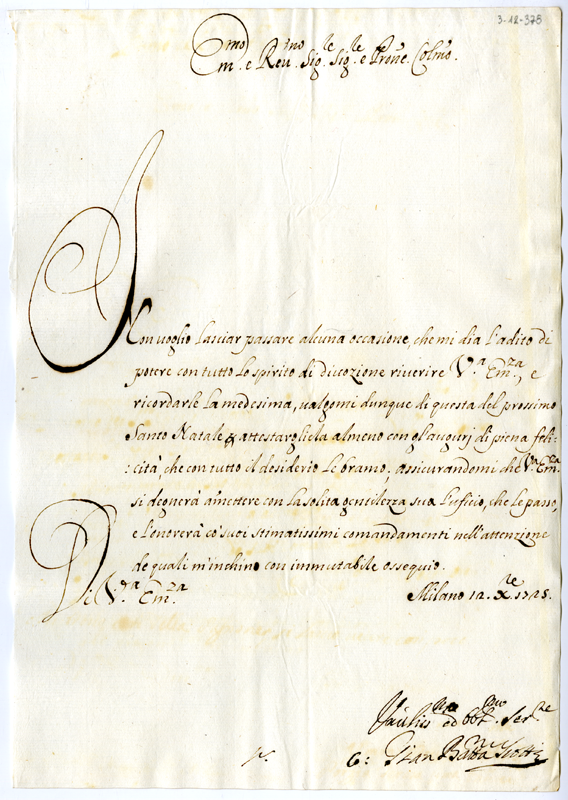 3-12-378
Em.mo e Reu.mo Sig.re Sig.re e Prone Colmo.
Non uoglio lasciar passare alcuna occasione, che mi dia l'adito di
potere con tutto lo spirito di diuozione riuerire V.a Em.za, e
ricordarle la medesima, ualgomi dunque di questa del prossimo
Santo Natale attestargliela almeno con gl'auguri di piena feli:
:cità, che con tutto il desiderio le bramo, assicurandomi che V.a Em.za
si degnerà amettere con la solita gentilezza sua l'ufficio, che le passo,
e l'onorerà co' suoi stimatissimi comandamenti nell'attenzione
de quali m'inchino con immutabile ossequio.
Di V.ra Em.za Milano 12. Xre. 1725.
ed obb.mo Ser.re
G: Gian Batta Scotti